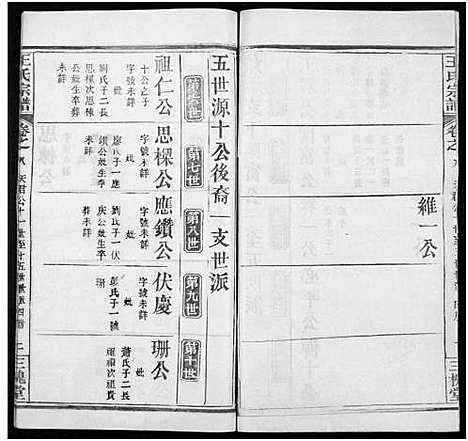 王氏宗譜
卷之
維一公
三槐堂
五世源十公後裔一支世派
第六世
第七世
第八世
第九世
第十世
祖仁公
十公之子
字號未詳
妣
劉氏子二長
思樑次思棟
公妣生卒葬
未詳
思樑公
字號未詳
妣
廖氏子一應
鑽公妣生卒
未詳
應鑽公
字號未詳
妣
劉氏子一伏
慶公妣生卒
葬未詳
伏慶
字號未詳
妣
彭氏子一號
珊
珊公
妣
蕭氏子二長
祖禎次祖貴
王氏宗譜
卷之八
三槐堂